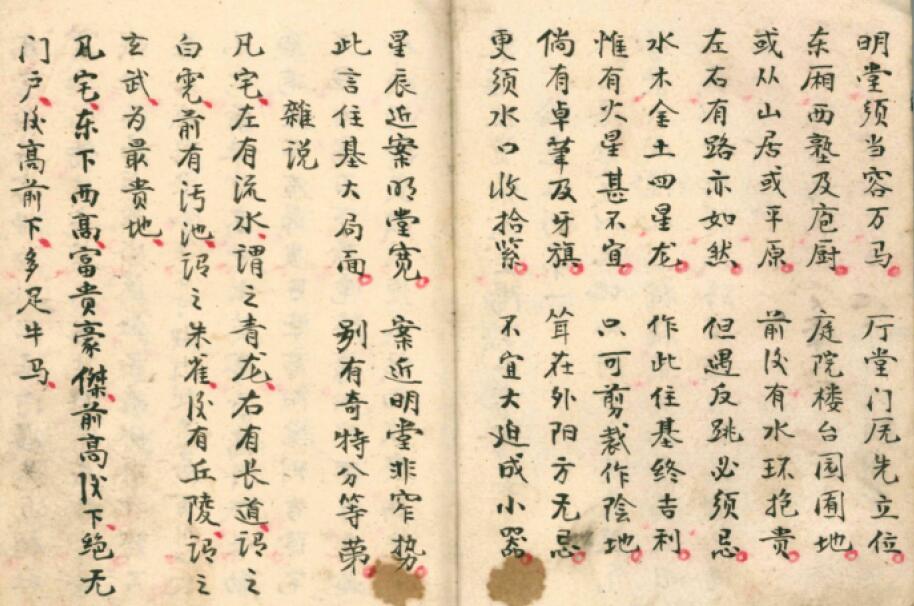 明堂须当容万马 厅堂门庑先立位
东厢西塾及庖厨 庭院楼台园囿地
或从山居或平原 前后有水环抱贵
左右有路亦如然 但遇反跳必须忌
水木金土四星龙 作此住基终吉利
惟有火星甚不宜 只可剪裁作陰地
倘有卓筆及牙旗 耸在外阳方无忌
更须水口收拾紧 不宜大迫成小器
星辰近案明堂宽 案近明堂非窄势
此言住基大局面 别有奇特分等第
雜说
凡宅左有流水、谓之青龙、右有长道、谓之
白虎、前有污池、谓之朱雀、後有丘陵、谓之
玄武、为最贵地、
凡宅、东下西高、富贵豪傑、前高後下、绝无
门户、後高前下、多足牛马、